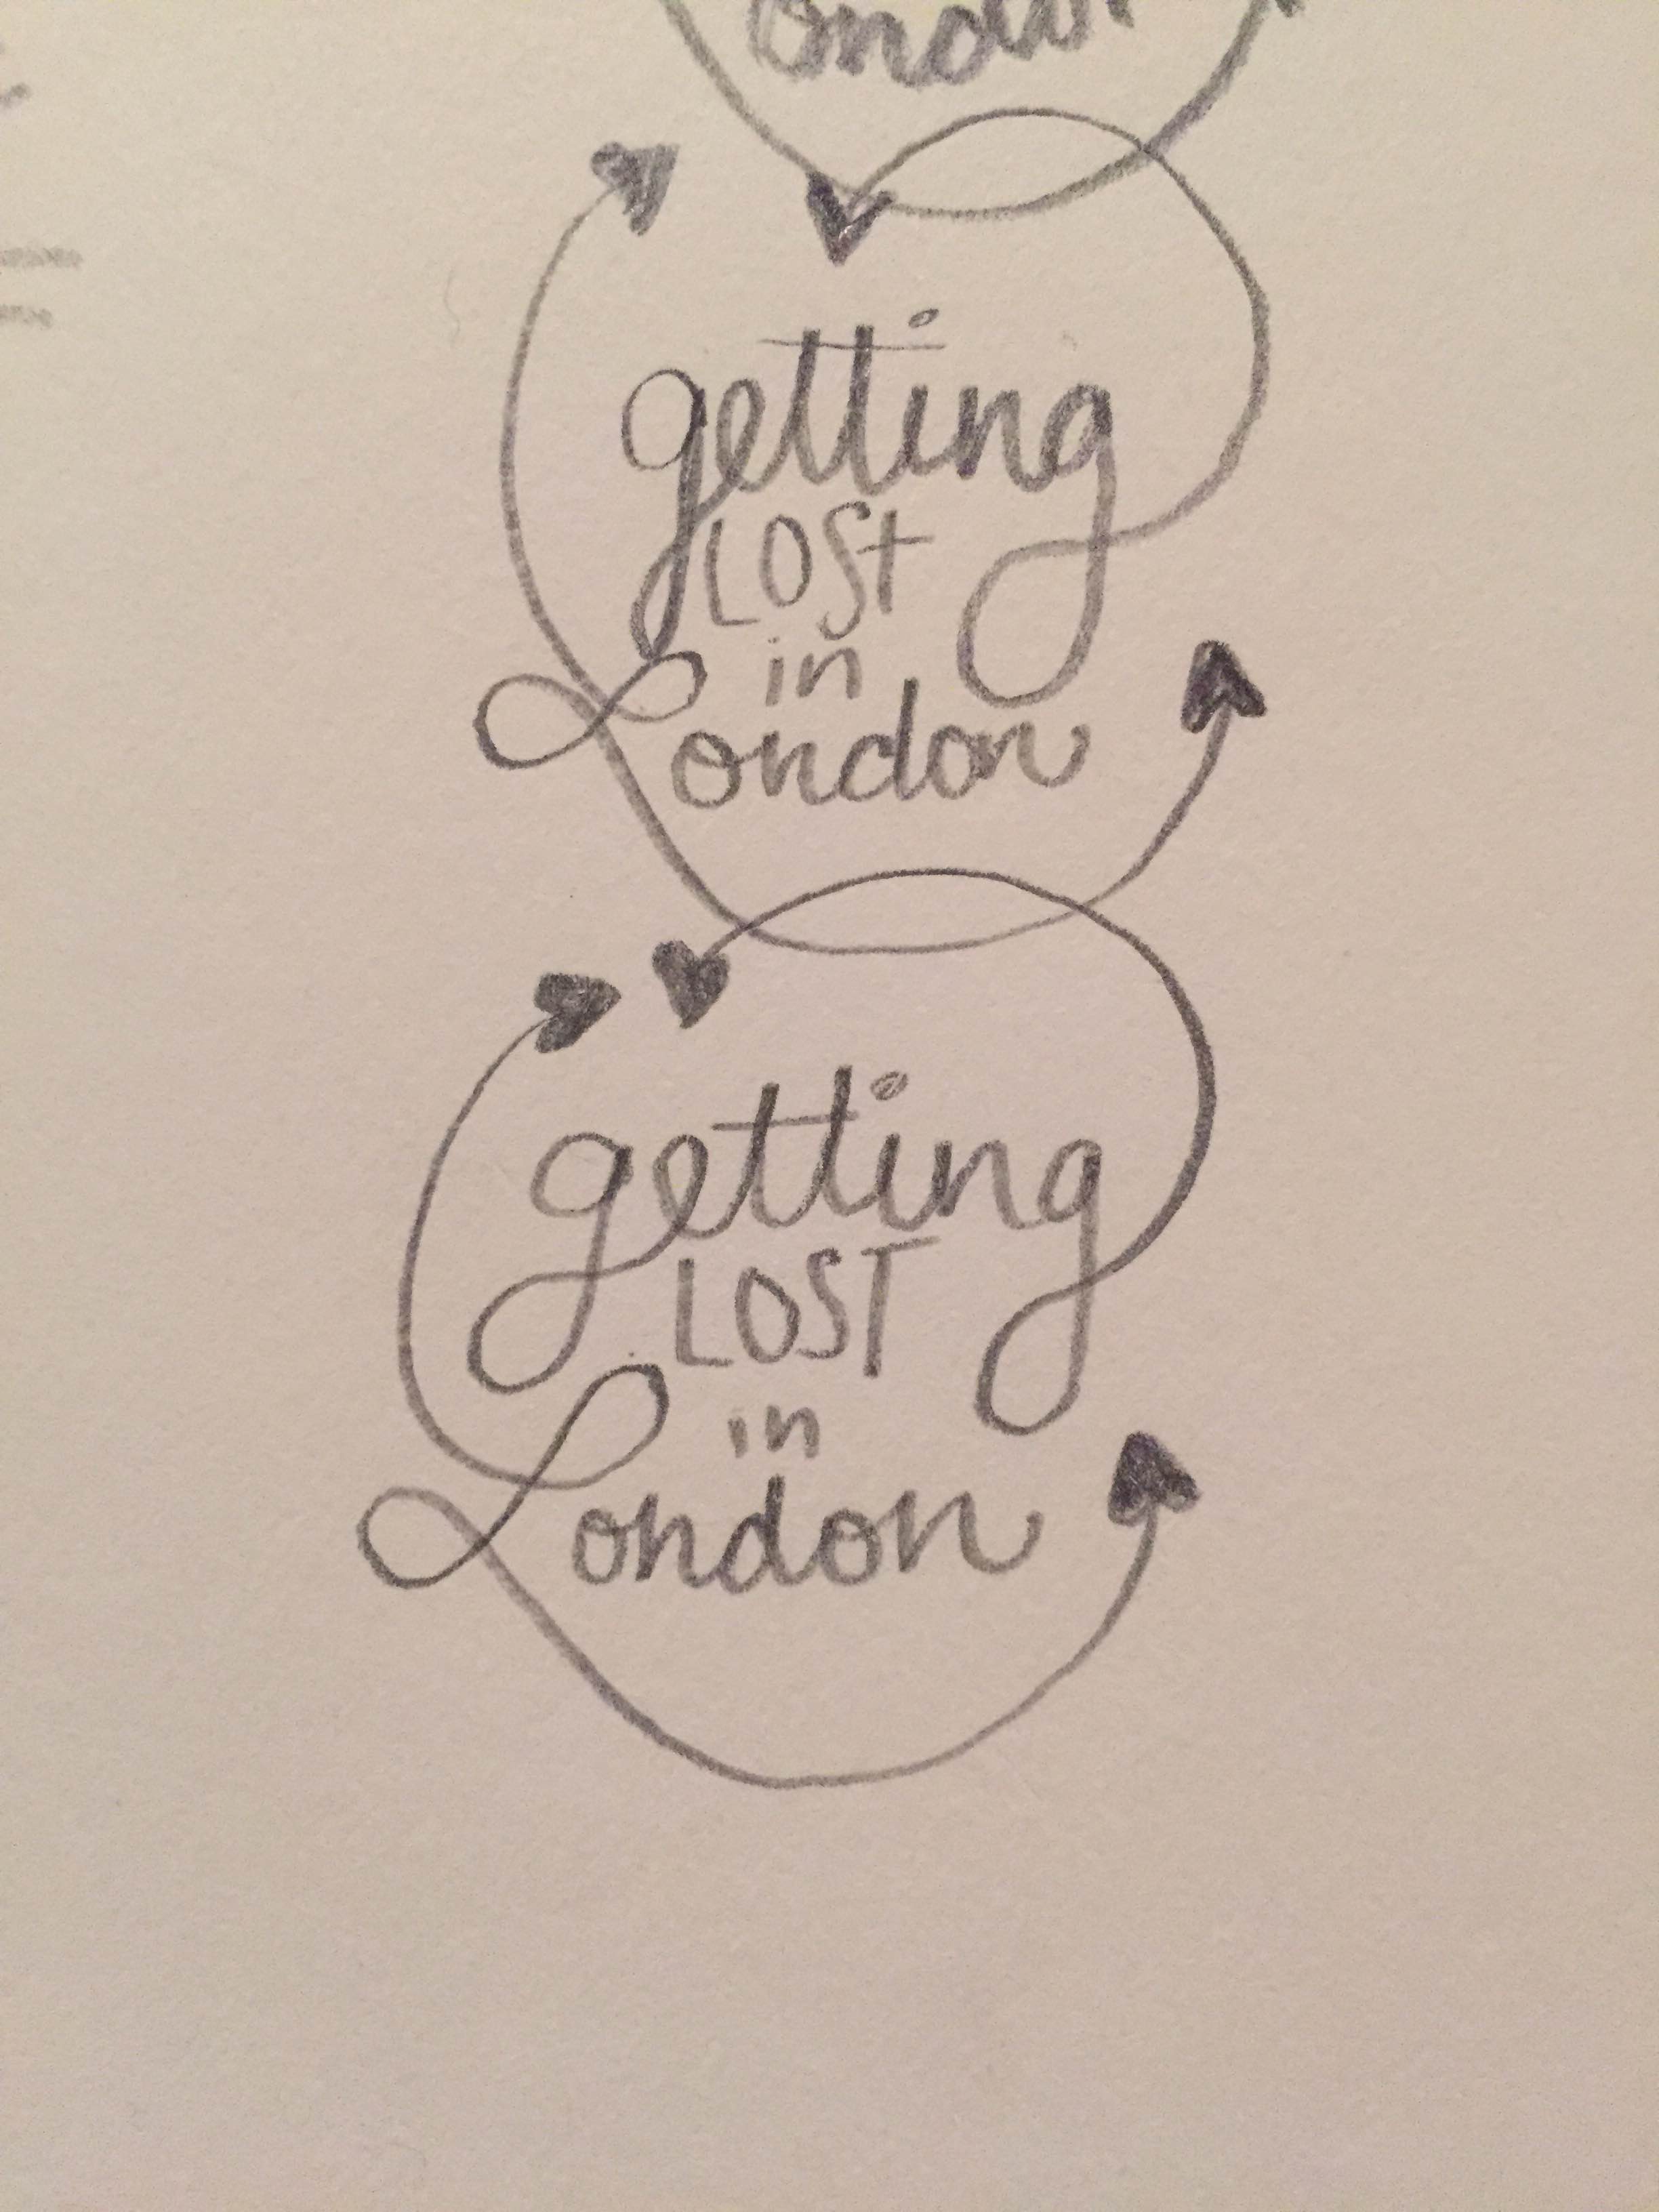 getting
LOST
in
London
getting
LOST
in
London